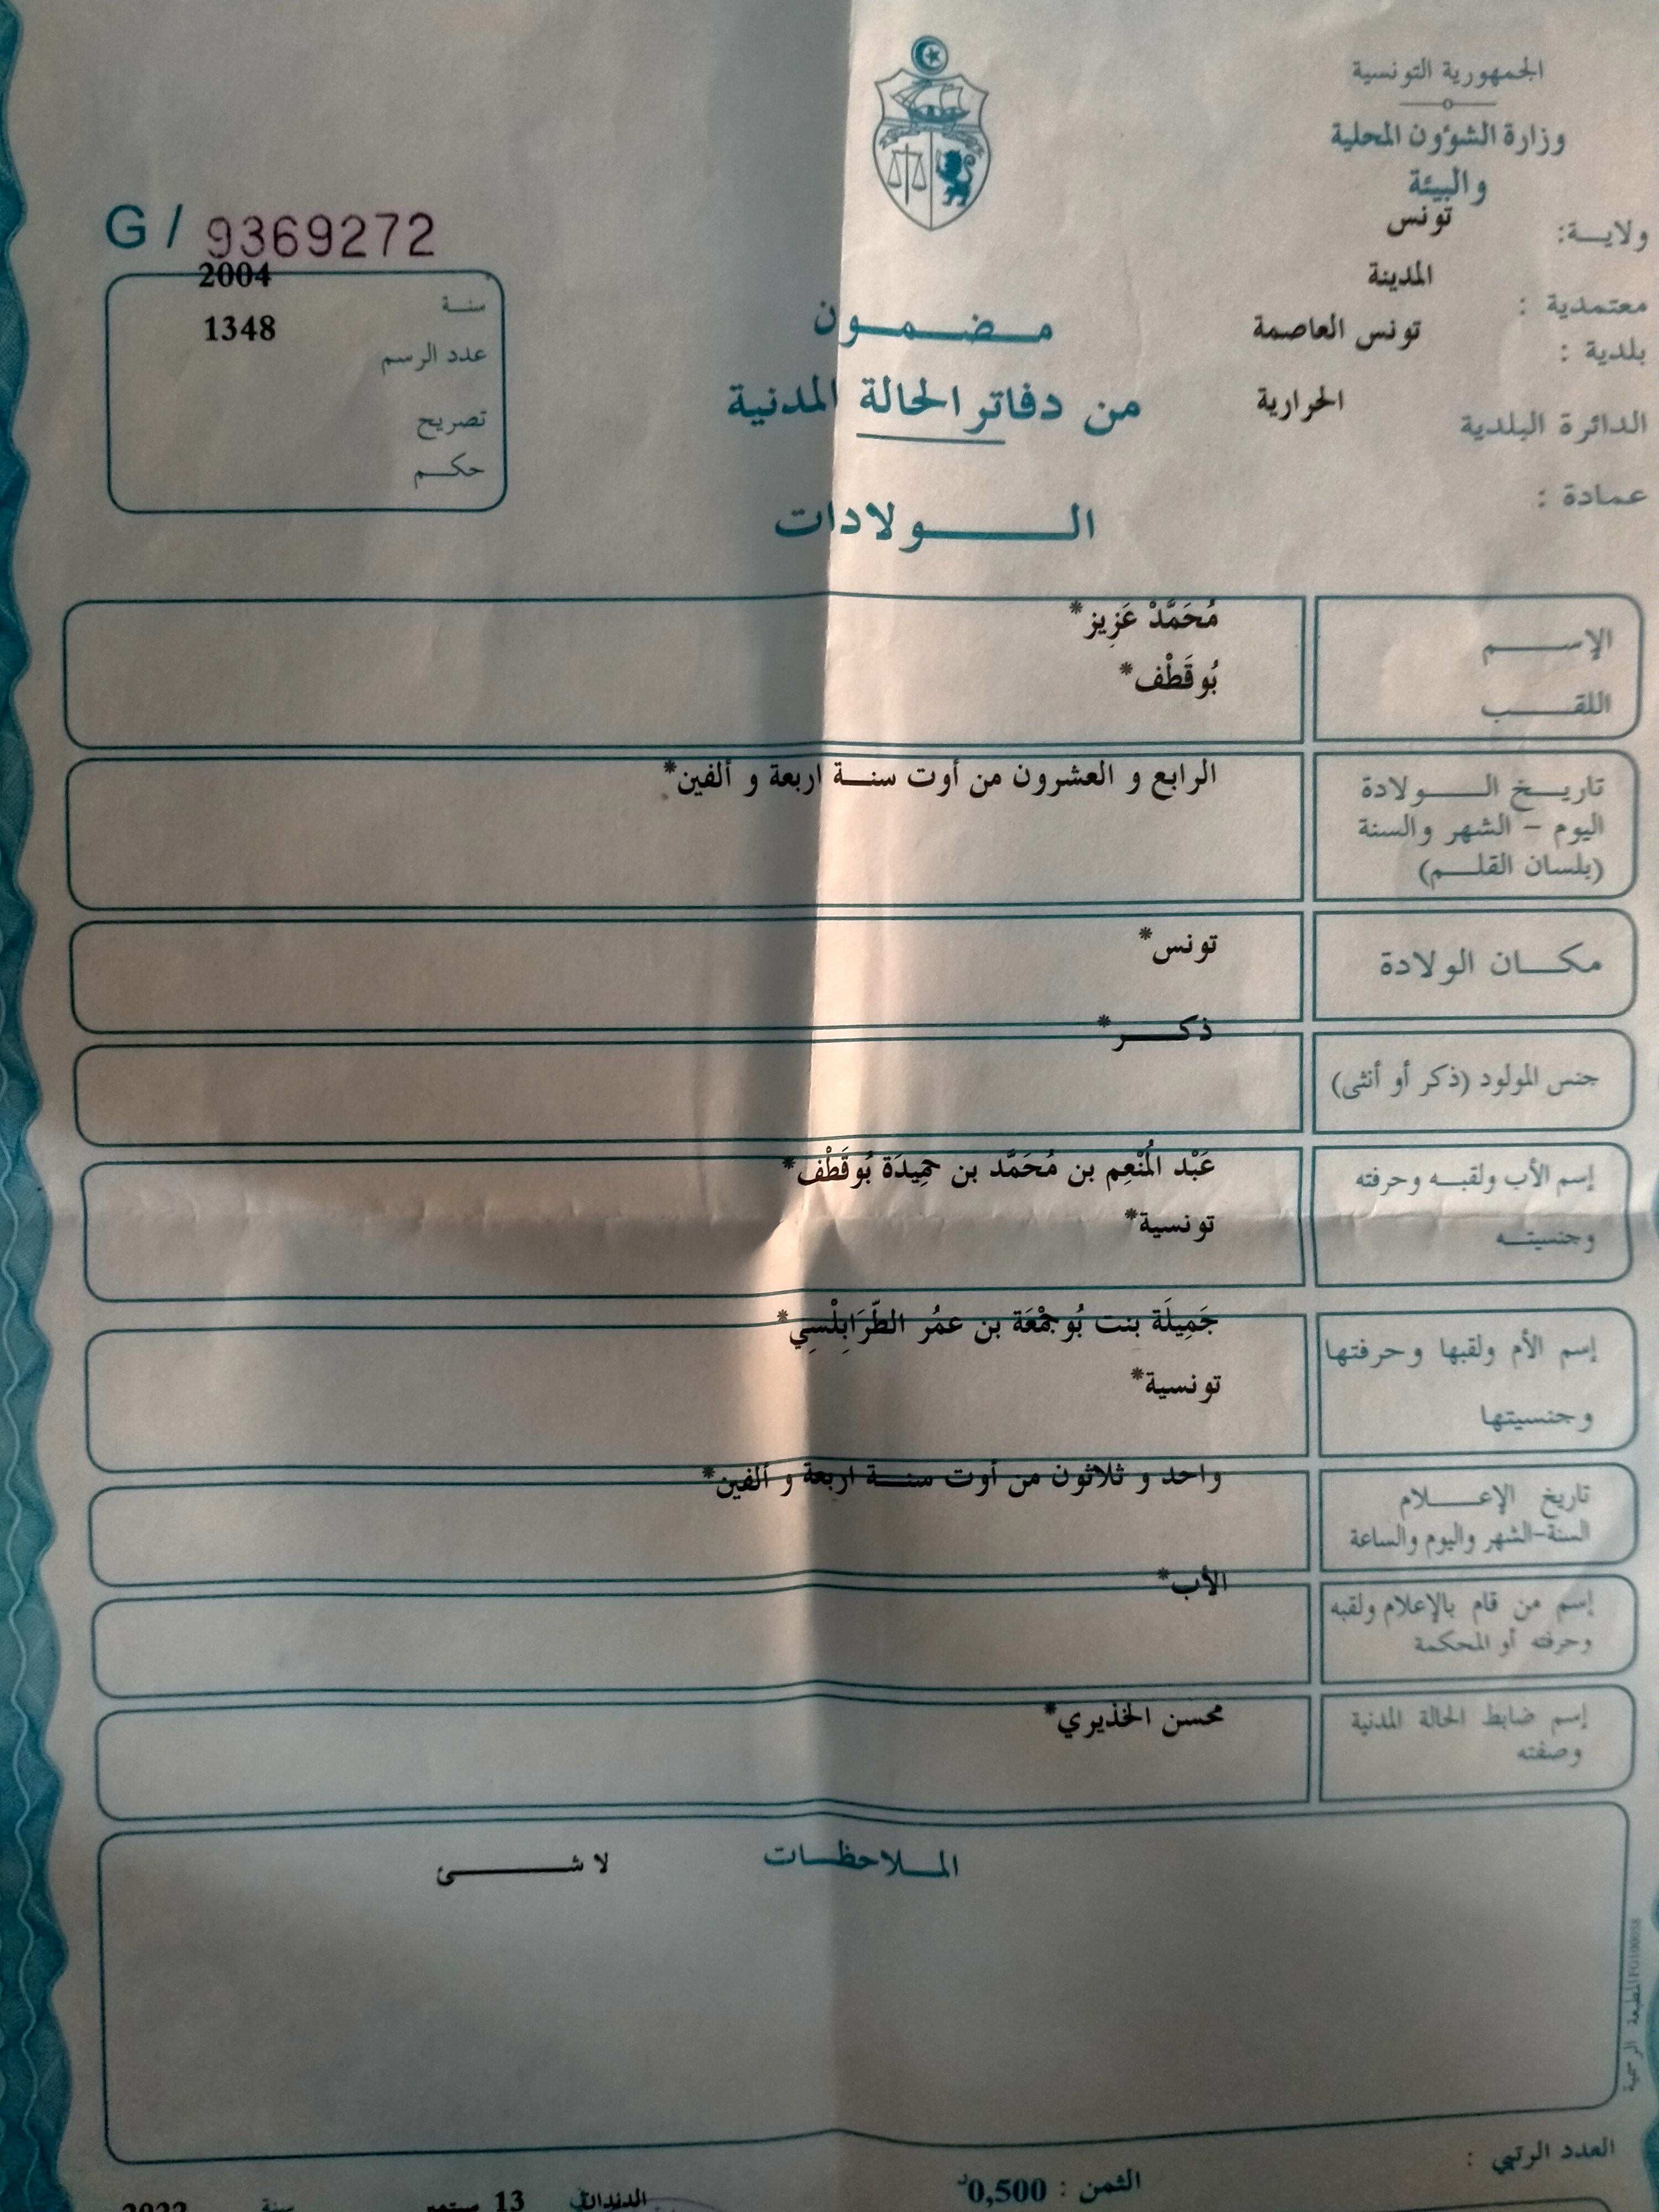 الجمهورية التونسية
وزارة الشؤون المحلية
والبيئة
ولاية: تونس
معتمدية : المدينة
بلدية : تونس العاصمة
الدائرة البلدية الحرارية
عمادة :
G / 9369272
سنة 2004
عدد الرسم 1348
تصريح
حكم
مضمون
من دفاتر الحالة المدنية
الولادات
الإسم مُحَمَّدْ عَزِيز*
اللقب بُوقَطْف*
تاريخ الولادة الرابع و العشرون من أوت سنة اربعة و ألفين*
اليوم - الشهر والسنة
(بلسان القلم)
مكان الولادة تونس*
جنس المولود (ذكر أو أنثى) ذكر*
إسم الأب ولقبه وحرفته عَبْد المُنْعِم بن مُحَمَّد بن حمِيدَة بُوقَطْف*
وجنسيته تونسية*
إسم الأم ولقبها وحرفتها جَمِيلَة بنت بُوجمْعَة بن عمُر الطّرَابِلْسِي*
وجنسيتها تونسية*
تاريخ الإعلام واحد و ثلاثون من أوت سنة اربعة و ألفين*
السنة-الشهر واليوم والساعة
إسم من قام بالإعلام ولقبه الأب*
وحرفته أو المحكمة
إسم ضابط الحالة المدنية محسن الخذيري*
وصفته
الملاحظات لا شئ
المطبعة الرسمية
العدد الرتبي :
الثمن : 0,500د
الدندان 13 سبتمبر سنة